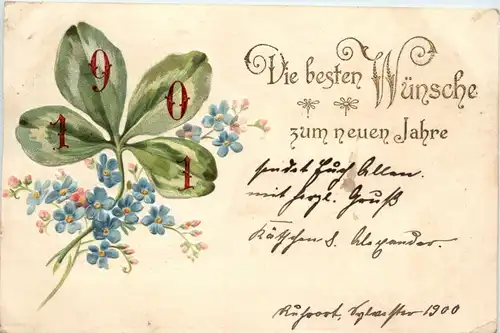 1 9 0 1
Die besten Wünsche
zum neuen Jahre
sendet Euch Allen.
mit herzl. Gruß
Käthchen & Alexander.
Ruhrort, Sylvester 1900